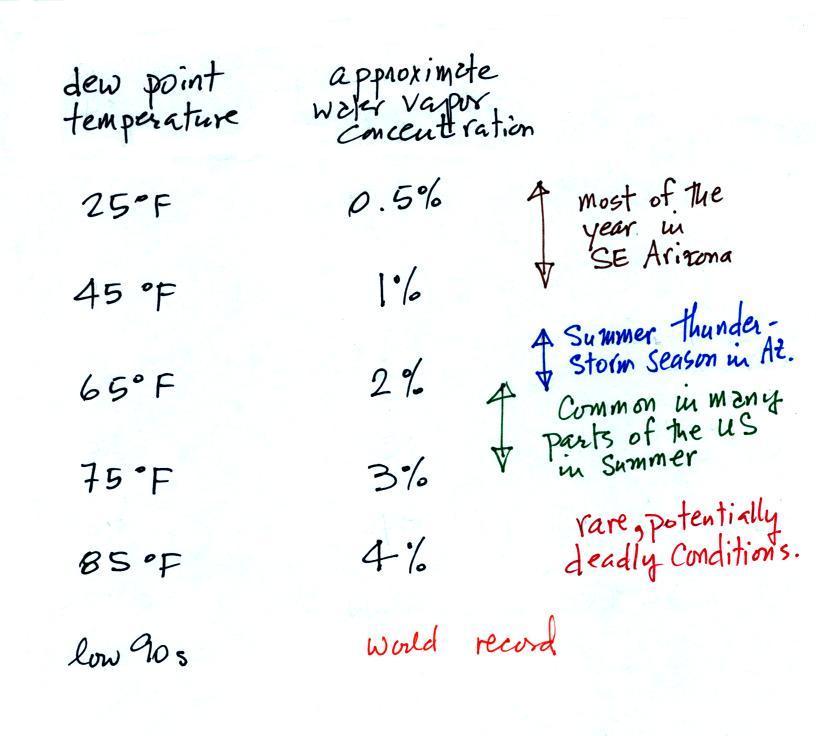 dew point
temperature
approximate
water vapor
concentration
25°F 0.5%
most of the
year in
SE Arizona
45 °F 1%
Summer thunder-
storm season in Az.
65°F 2%
Common in many
parts of the US
in Summer
75°F 3%
rare, potentially
deadly Conditions.
85 °F 4%
low 90s world record